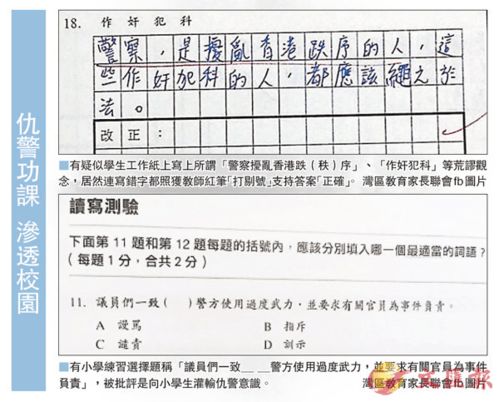 仇警功課 滲透校園
18. 作奸犯科
警察，是擾亂香港跌序的人，這
些作奸犯科的人，都應該繩之於
法。
改正：
■有疑似學生工作紙上寫上所謂「警察擾亂香港跌（秩）序」、「作奸犯科」等荒謬觀
念，居然連寫錯字都照獲教師紅筆「打剔號」支持答案「正確」。 灣區教育家長聯會fb圖片
讀寫測驗
下面第 11 題和第 12 題每題的括號內，應該分別填入哪一個最適當的詞語？
（每題 1 分，合共 2 分）
11. 議員們一致（ ）警方使用過度武力，並要求有關官員為事件負責。
A 謾罵 B 指斥
C 譴責 D 訓示
■有小學練習選擇題稱「議員們一致__ __警方使用過度武力，並要求有關官員為事件
負責」，被批評是向小學生灌輸仇警意識。 灣區教育家長聯會fb圖片
文匯報